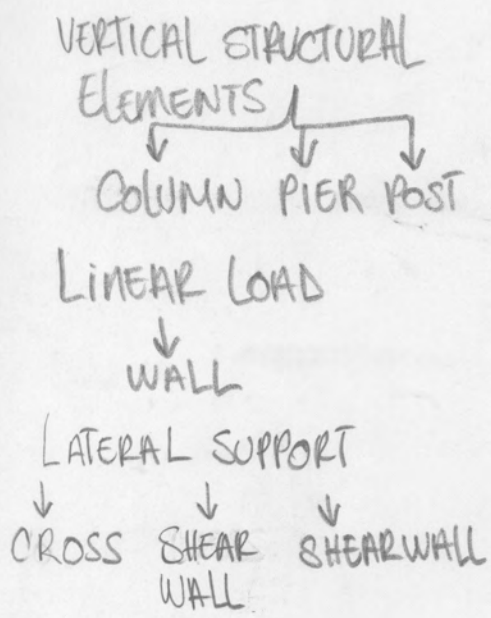 VERTICAL STRUCTURAL
ELEMENTS
COLUMN PIER POST
LINEAR LOAD
WALL
LATERAL SUPPORT
CROSS SHEAR SHEARWALL
WALL